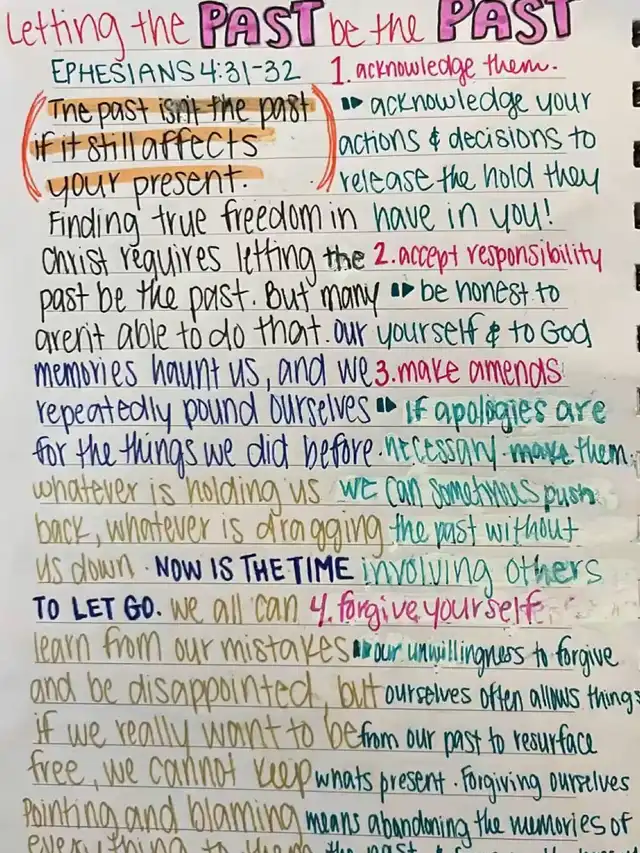 Letting the PAST be the PAST
EPHESIANS 4:31-32
(The past isn't the past
if it still affects
your present.)
Finding true freedom in
Christ requires letting the
past be the past. But many
aren't able to do that. our
memories haunt us, and we
repeatedly pound ourselves
for the things we did before.
whatever is holding us
back, whatever is dragging
us down. NOW IS THE TIME
TO LET GO. we all can
learn from our mistakes
and be disappointed, but
if we really want to be
free, we cannot keep
pointing and blaming
everything to
1. acknowledge them.
acknowledge your
actions & decisions to
release the hold they
have in you!
2. accept responsibility
be honest to
yourself & to God
3. make amends
if apologies are
necessary. make them,
we can sometimes push
the past without
involving others
4. forgive yourself
our unwillingness to forgive
ourselves often allows things
from our past to resurface
whats present. Forgiving ourselves
means abandoning the memories of
the past &